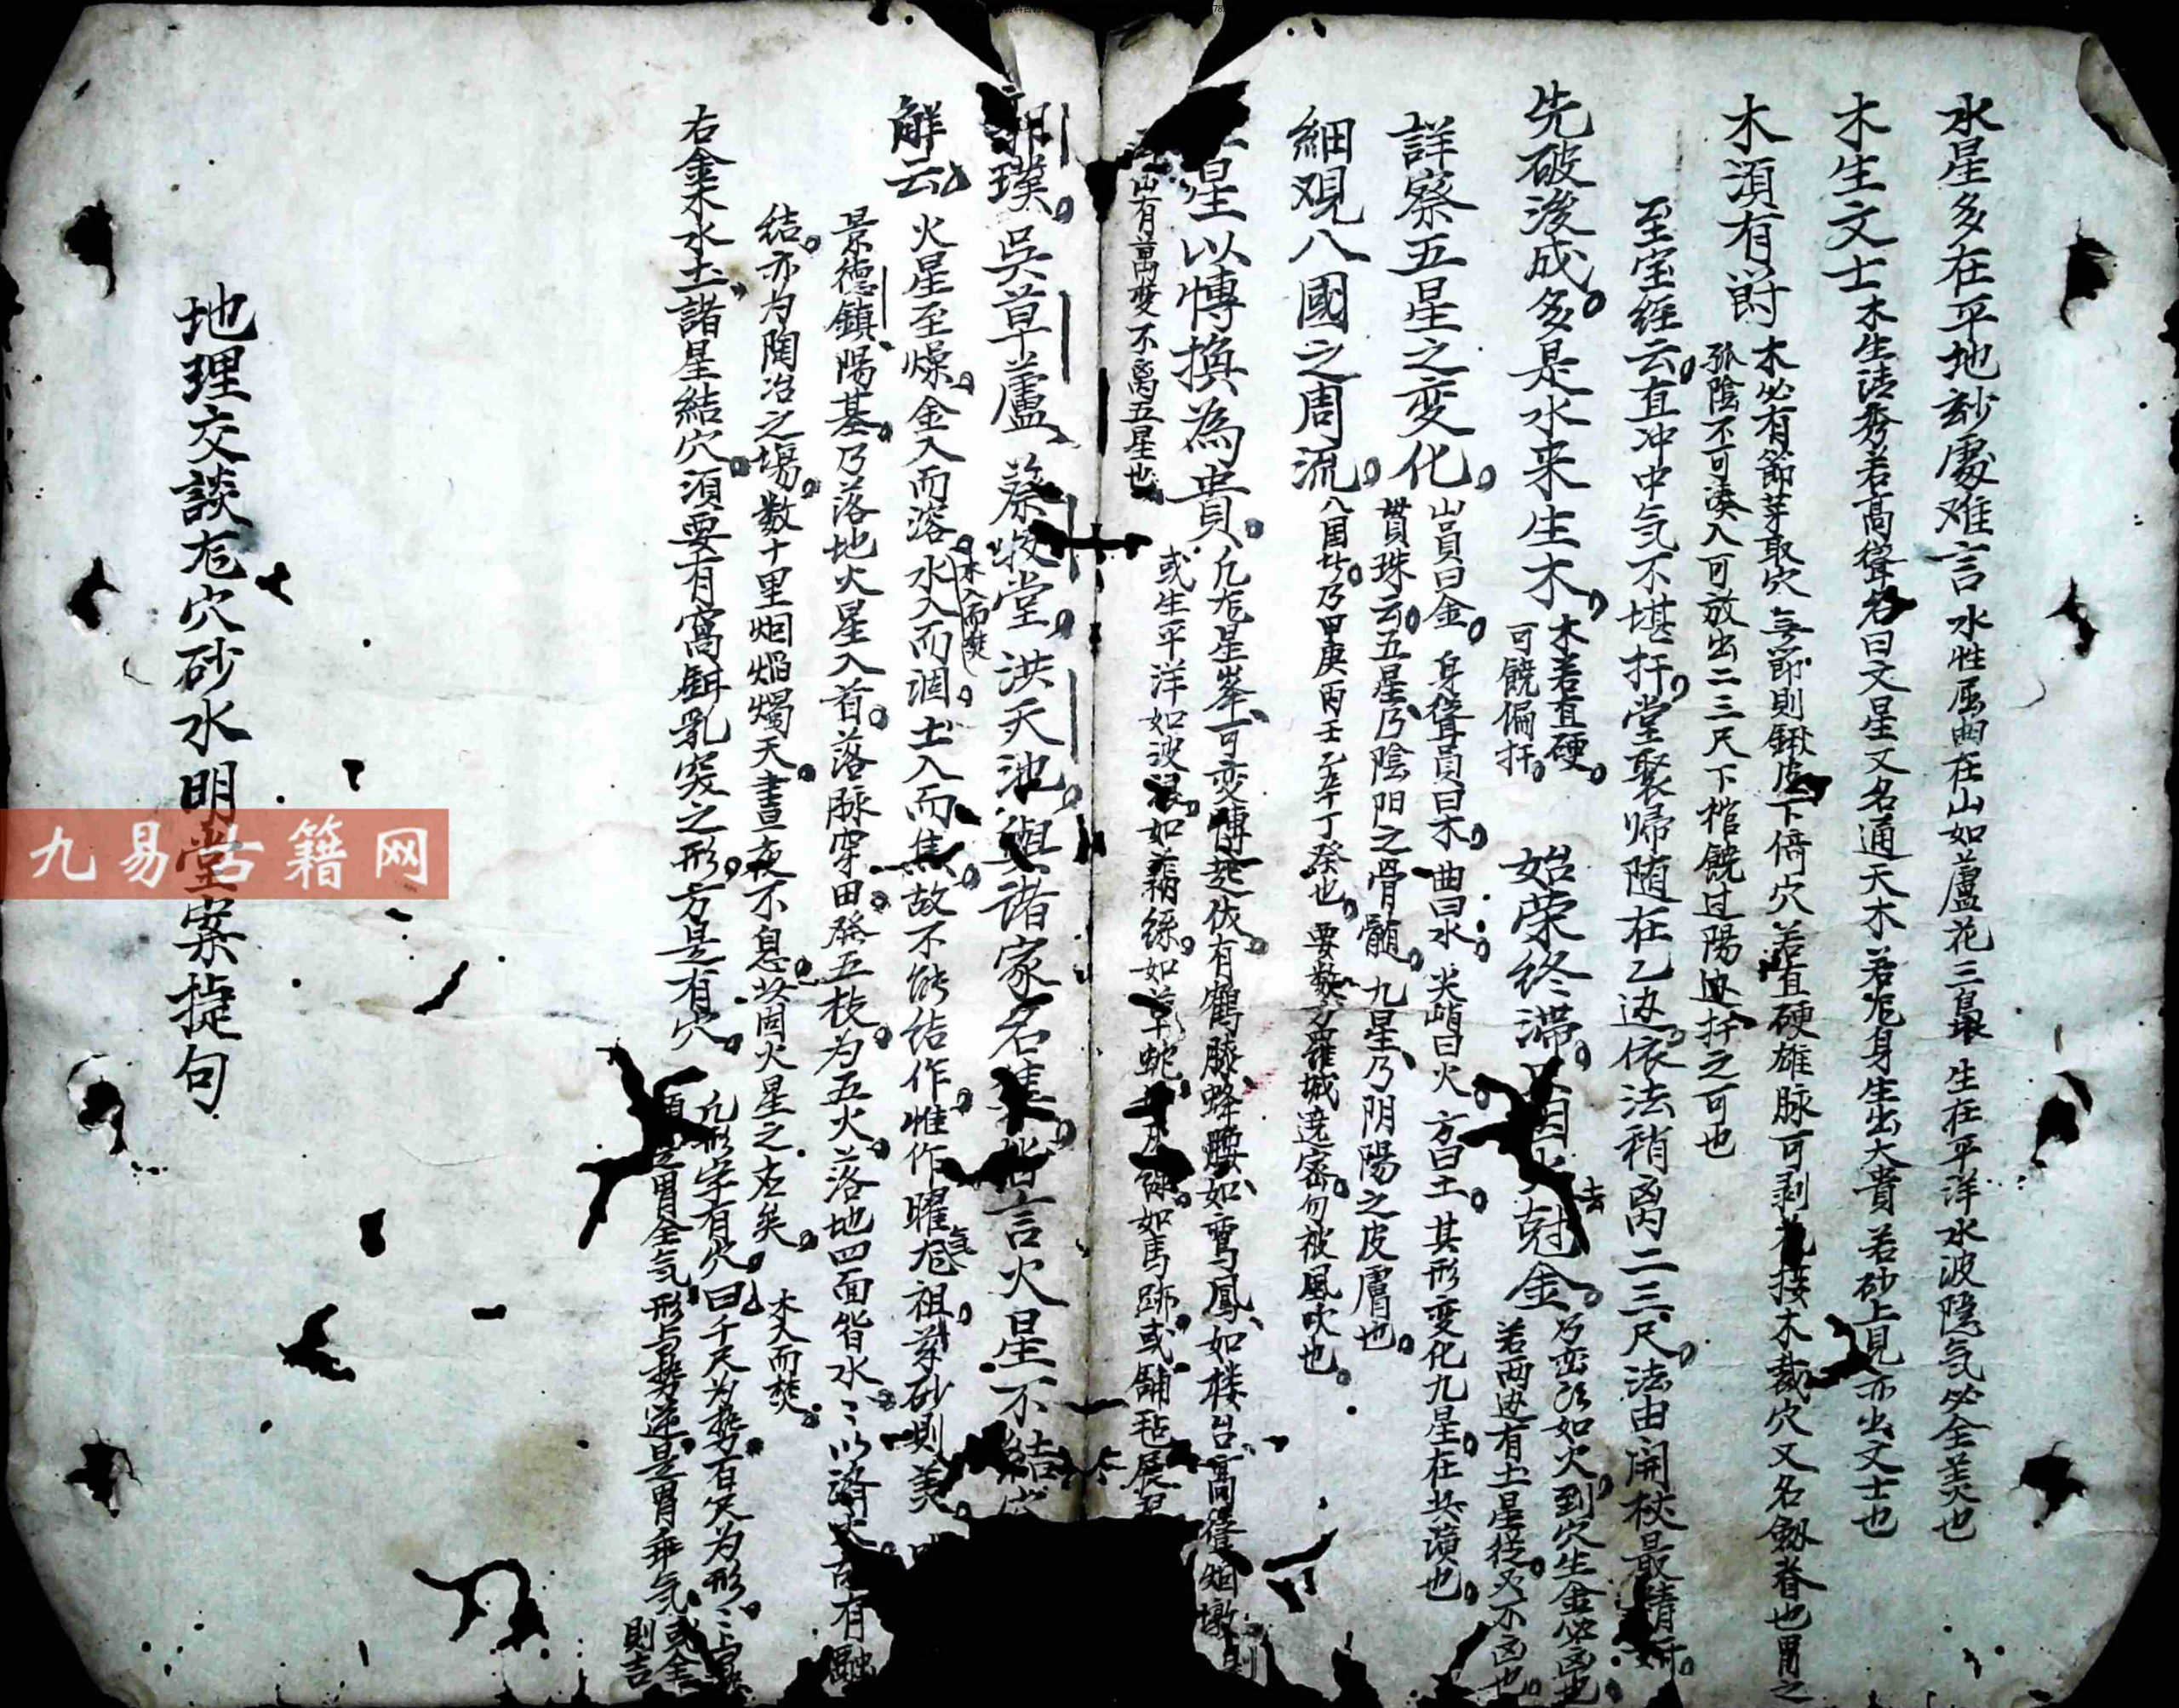 水星多在平地玅處难言 水性屈曲在山如蘆花三裊 生在平洋水波隐气必全美也
木生文士 木生清秀若高聳名曰文星又名通天木若龙身生出大貴 若砂上見亦出文士也
木湏有莭 木必有節芽取穴 無節則鍬皮下倚穴 若直硬雄脉可剥 接木裁穴又名劔脊也胃之
孤陰不可湊入可放出二三尺下棺饒过陽边扦之可也
至宝经云直冲中气不堪扦堂聚帰随在乙边依法稍离二三尺法由開杖最精
先破後成多是水来生木 木若直硬
可饒偏扦
始荣终滞 因火尅金 乃峦頭如火到穴生金必凶也
若两边有土星從又不凶也
詳察五星之变化 山員曰金 身聳員曰木 曲曰水 尖峭曰火 方曰土 其形变化九星在共演也
貫珠云五星乃陰阳之骨髓 九星乃阴陽之皮膚也
細观八國之周流 八国者乃甲庚丙壬乙辛丁癸也 要数 羅城遶密勿被風吹也
星以愽換為貴 凡龙星峯可变愽起伏有鶴膝蜂腰如鸞鳳如楼台高聳烟墩
或生平洋如波浪如藕絲如草蛇 如馬跡或舗毡展
山有萬变不离五星也
郭璞 吳草蘆 蔡牧堂 洪天池 與諸家名集皆言火星不結
解云 火星至燥金入而溶 木入而焚 水入而涸 土入而焦故不能结作惟作曜气龙祖芽砂則美
景德鎮陽基乃落地火星入首落脉穿田發五枝为五火落地四面皆水〻以濟火 有融
結亦为陶冶之塲数十里烟焰燭天晝夜不息以固火星之左矣 木入而焚
右金木水土諸星結穴湏要有窩鉗乳突之形方是有穴 凡形字有穴曰千尺为势百尺为形〻与
胃全气形与势逆是胃乖气或全
則吉
地理交談龙穴砂水明堂案㨗句
九易古籍网